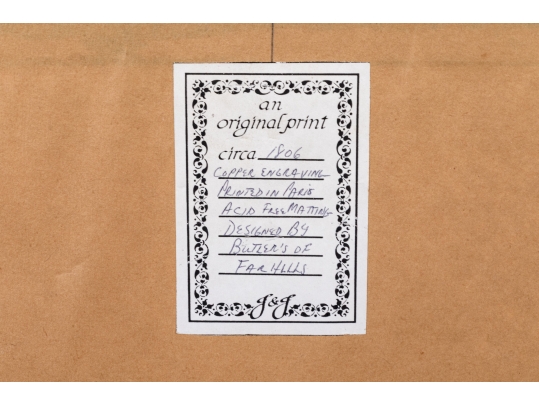 an
original print
circa 1806
COPPER ENGRAVING
PRINTED IN PARIS
ACID FREE MATTING
DESIGNED BY
BUTLER'S OF
FAR HILLS
g&g